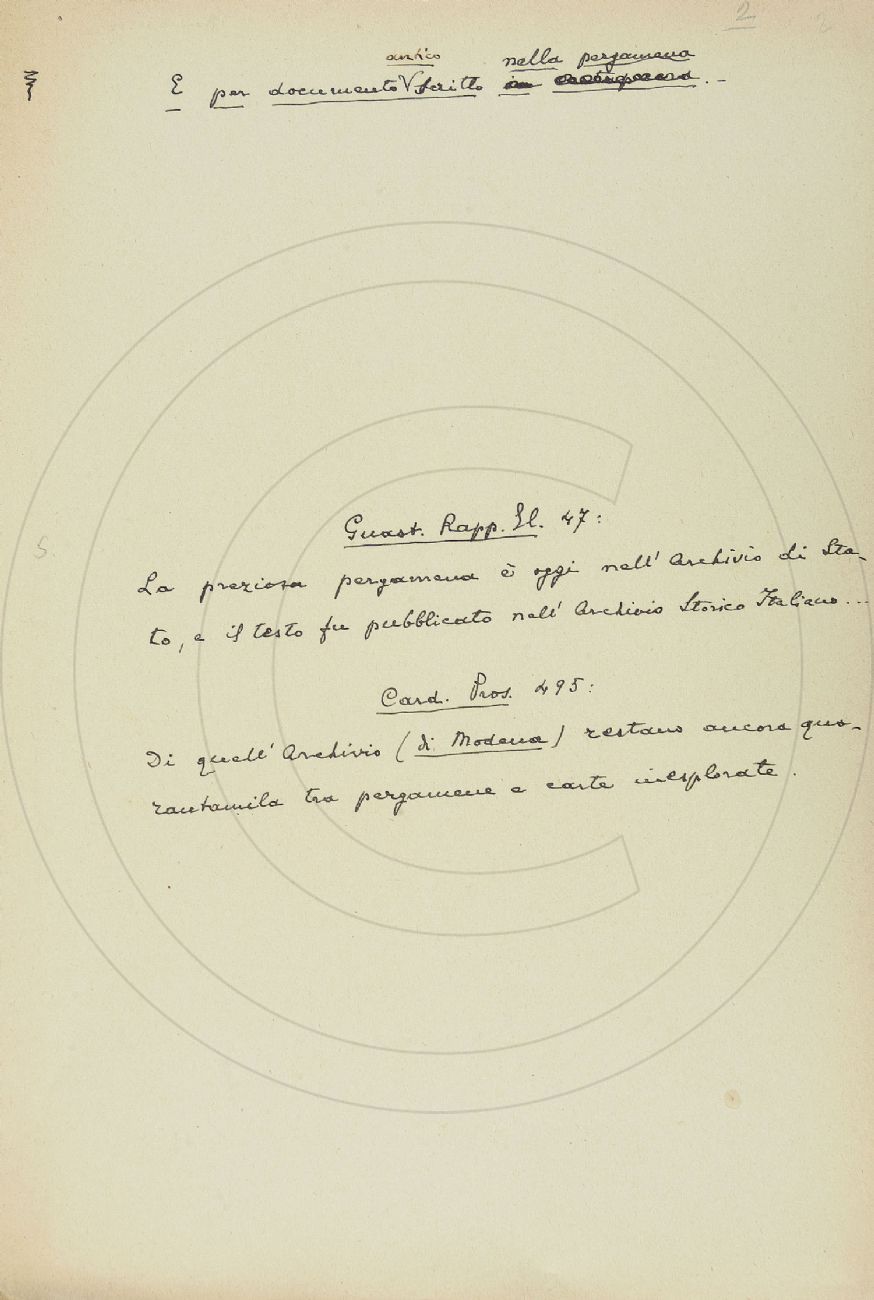 2
antico nella pergamena
E per documento V scritto in cartapecora. –
S.
Guast. Rapp. El. 47:
La preziosa pergamena è oggi nell' Archivio di Sta-
to, e il testo fu pubblicato nell' Archivio Storico Italiano...
Card. Pros. 495:
Di quell' Archivio (di Modena) restano ancora qua-
rantamila tra pergamene e carte inesplorate.